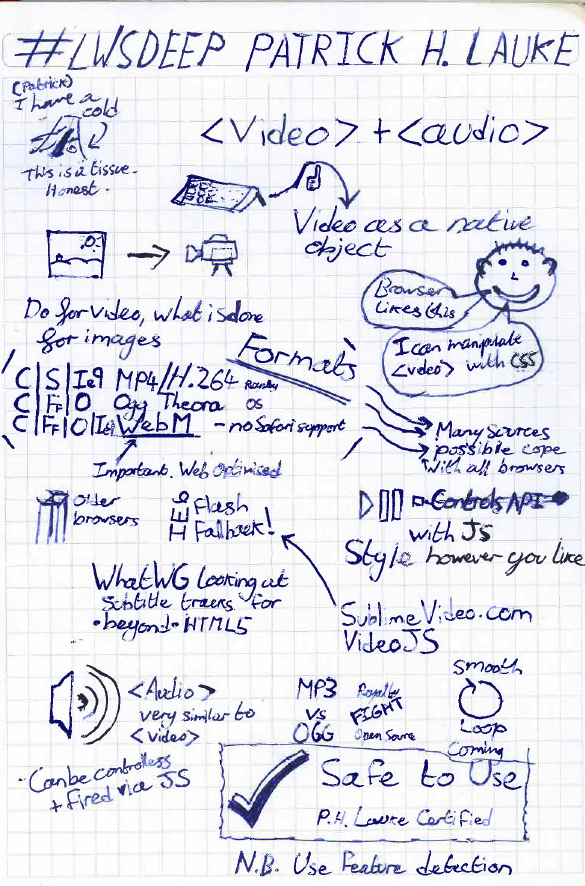 #LWSDEEP PATRICK H. LAUKE
(Patrick)
I have a
cold
This is a tissue.
Honest.
<Video> + <audio>
Video as a native
object
Browser
likes this
I can manipulate
<video> with CSS
Do for video, what is done
for images
Formats
C|S|Ie9 MP4/H.264 Royalty
C|FF|O Ogg Theora OS
C|FF|O|Ie9 WebM - no Safari support
Important. Web Optimised
Many sources
possible cope
with all browsers
Older
browsers
Flash
Fallback!
Controls API
with JS
Style however you like
WhatWG looking at
subtitle tracks for
•beyond• HTML5
SublimeVideo.com
VideoJS
<Audio>
very similar to
<video>
- Can be controlless
+ fired via JS
MP3 Royalty
vs FIGHT
OGG Open Source
Smooth
Loop
Coming
Safe to Use
P.H. Lauke Certified
N.B. Use Feature detection